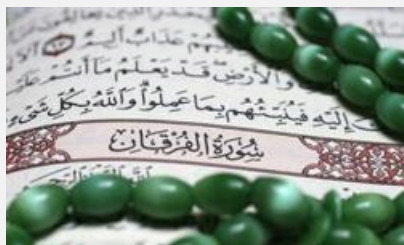 الَّذِينَ يُخَالِفُونَ
عَذَابٌ أَلِيمٌ ۝٦٣ أَلَا
وَالْأَرْضِ قَدْ يَعْلَمُ مَا أَنتُمْ عَلَيْهِ
إِلَيْهِ فَيُنَبِّئُهُم بِمَا عَمِلُوا وَاللَّهُ بِكُلِّ شَيْءٍ
سُورَةُ الْفُرْقَانِ